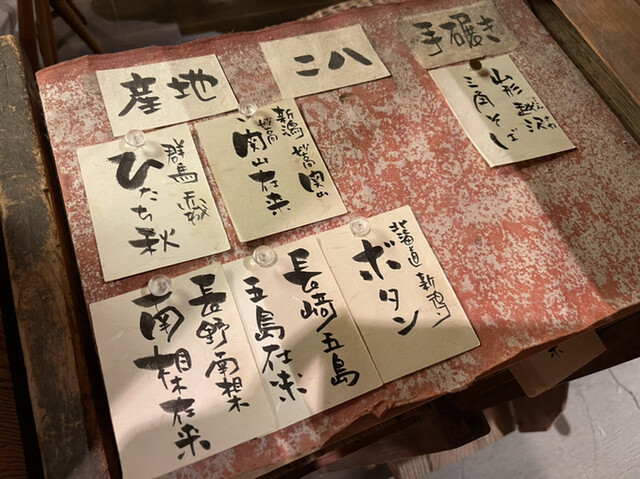 産地
二八
手碾き
山形 越沢
三角そば
新潟 妙高 関山
妙高 関山在来
群馬 赤城
ひたち秋
北海道
ボタン
長崎五島
五島在来
長野南相木
南相木在来